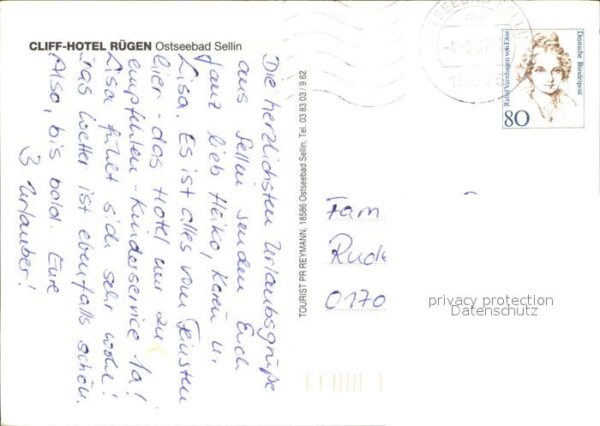 CLIFF-HOTEL RÜGEN Ostseebad Sellin
Die herzlichsten Urlaubsgrüße
aus Sellin senden Euch
ganz lieb Heiko, Karin u.
Lisa. Es ist alles vom Feinsten
hier - das Hotel nur zu
empfehlen - Kinderservice 1a!
Lisa fühlt sich sehr wohl!
Das Wetter ist ebenfalls schön.
Also, bis bald. Eure
3 Urlauber!
TOURIST PR REYMANN, 18586 Ostseebad Sellin, Tel. 03 83 03 / 9 62
OSTSEEBAD SELLIN
Deutsche Bundespost
Rahel Varnhagen von Ense
80
Fam
Rud
0170
privacy protection
Datenschutz